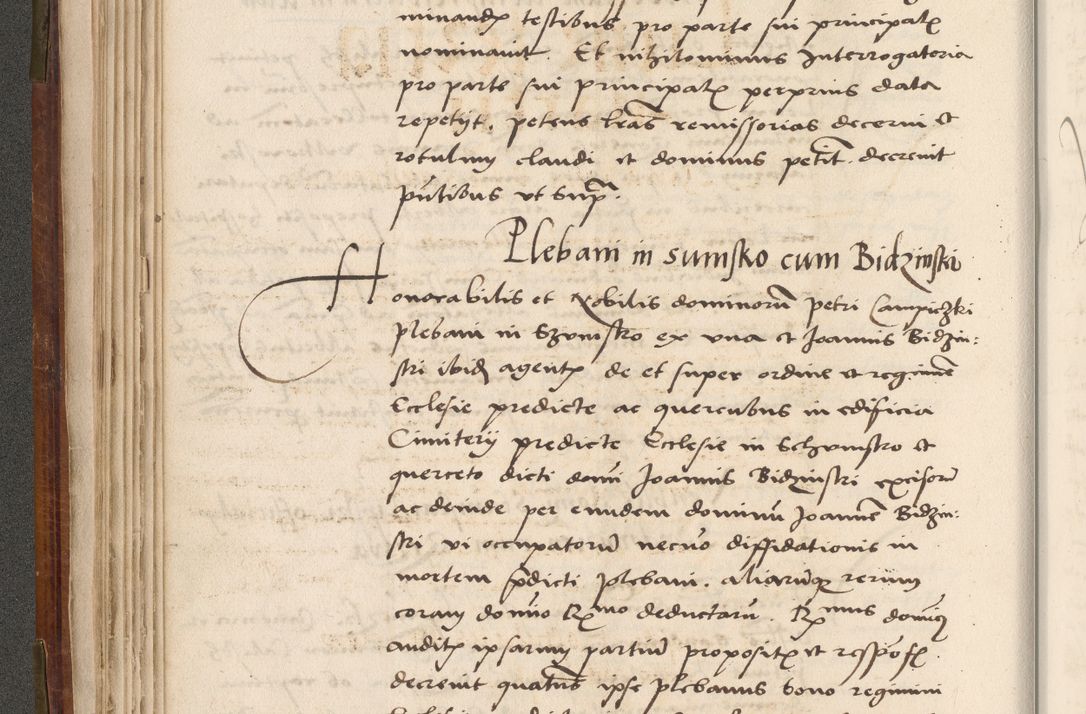 minandꝝ testibus pro parte sui principalꝭ
nominavit. Et nihilominus Interrogatoria
pro parte sui principalꝭ perprius data
repetyt. petens lr̃as remissorias decerni et
rotulum claudi et dominus petit̃. decrevit
pñtibus ut sup̃.
Plebani in Sumsko cum Bidzinski
Honorabilis et Nobilis dominorũ petri Campiczki
plebani in Szumsko ex una et Joannis Bidzin:
ski ibidꝫ agentꝭ de et super ordine et regimine
Ecclesie predicte ac quercubus in edificia
Cimiterij predicte Ecclesie in Schumsko et
querceto dicti domi Joannis Bidzinski excisorũ
ac deinde per eundem dominũ Joannẽ Bidzin:
ski vi occupatorũ necno diffidationis in
mortem p̃dicti plebani. aliarũqꝫ rerum
coram domino Rmo deductarũ. Rmus dominꝰ
auditꝭ ipsarum partium propositꝭ et resp̃osꝭ
decrevit quatenus ipse plebanus bono regimini